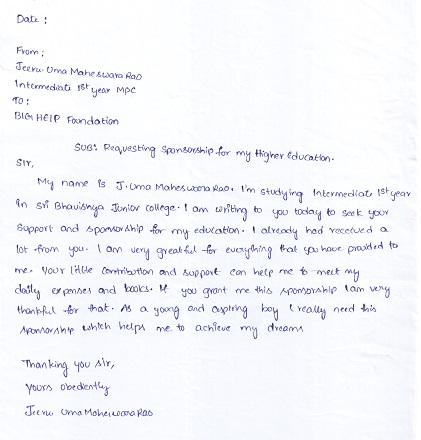 Date :
From :
Jeeru Uma Maheswara Rao
Intermediate 1st year MPC
To :
BIG HELP Foundation
SUB: Requesting sponsorship for my Higher Education.
Sir,
My name is J. Uma Maheswara Rao. I'm studying Intermediate 1st year
in Sri Bhavishya Junior college. I am writing to you today to seek your
support and sponsorship for my education. I already had received a
lot from you. I am very greatful for everything that you have provided to
me. Your little contribution and support can help me to meet my
daily expenses and books. If you grant me this sponsorship I am very
thankful for that. As a young and aspiring boy I really need this
sponsorship which helps me to achieve my dreams
Thanking you sir,
yours obediently
Jeeru Uma Maheswara Rao